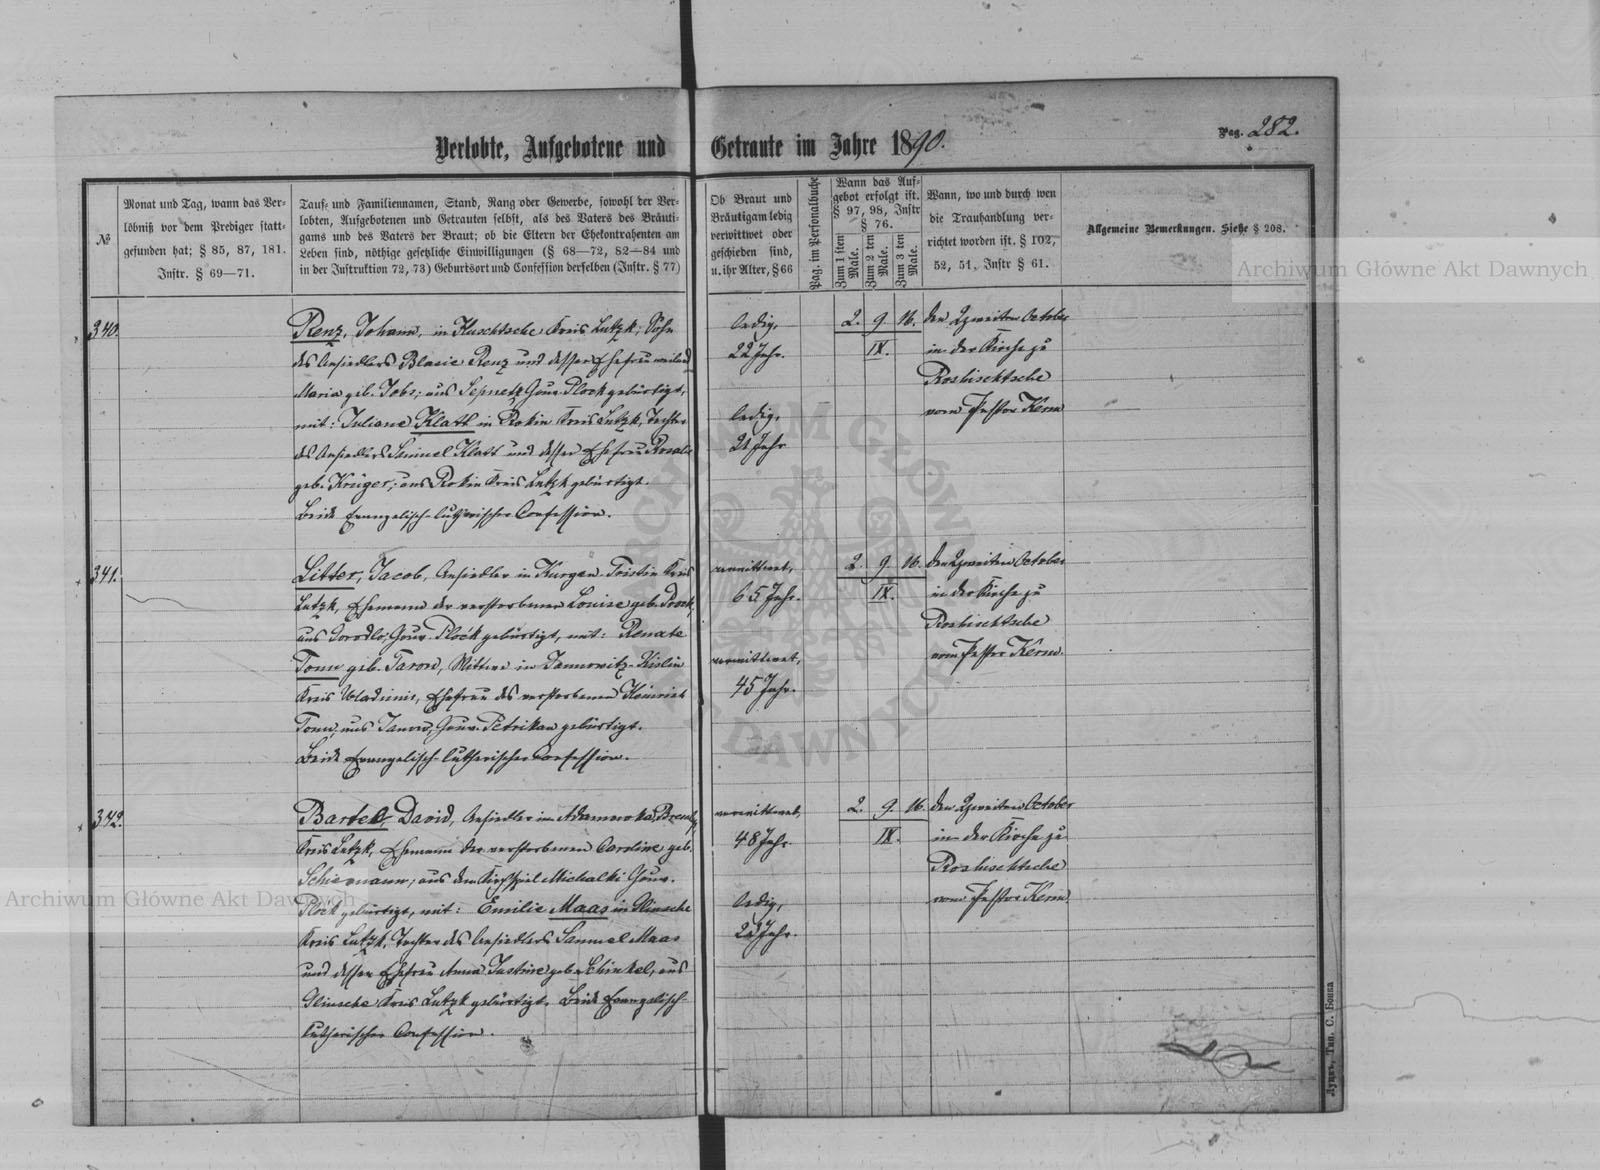 Verlobte, Aufgebotene und Getraute im Jahre 1890.
Pag. 282.
№
Monat und Tag, wann das Ver-
löbniß vor dem Prediger statt-
gefunden hat; § 85, 87, 181.
Instr. § 69—71.
Tauf- und Familiennamen, Stand, Rang oder Gewerbe, sowohl der Ver-
lobten, Aufgebotenen und Getrauten selbst, als des Vaters des Bräuti-
gams und des Vaters der Braut; ob die Eltern der Ehekontrahenten am
Leben sind, nöthige gesetzliche Einwilligungen (§ 68—72, 82—84 und
in der Instruktion 72, 73) Geburtsort und Confession derselben (Instr. § 77)
Ob Braut und
Bräutigam ledig
verwittwet oder
geschieden sind,
u. ihr Alter, § 66
Pag. im Personalbuche
Wann das Auf-
gebot erfolgt ist.
§ 97, 98, Instr
§ 76.
Zum 1 sten
Male.
Zum 2 ten
Male.
Zum 3 ten
Male.
Wann, wo und durch wen
die Trauhandlung ver-
richtet worden ist. § 102,
52, 51, Instr § 61.
Allgemeine Bemerkungen. Siehe § 208.
340.
Renz, Johann, in Kluschtsche Kreis Lutzk; Sohn
des Ansiedlers Blasie Renz und dessen Ehefrau weiland
Maria geb. Jobs; aus Gouv. Plock gebürtigt,
mit: Juliane Klatt in Rokin Kreis Lutzk, Tochter
des Ansiedlers Samuel Klatt und dessen Ehefrau Rosalie
geb. Krüger; aus Rokin Kreis Lutzk gebürtigt.
Beide Evangelisch-lutherischer Confession.
ledig,
22 Jahr.
ledig,
21 Jahr
2. 9. 16.
IX.
den Zweiten October
in der Kirche zu
Roshischtsche
vom Pastor Kerm
341.
Litter, Jacob, Ansiedler in Kurgan-Tristin Kreis
Lutzk, Ehemann der verstorbenen Louise geb. Prock,
aus Gouv. Plock gebürtigt, mit: Renate
Tonn geb. Taron, Wittwe in Janowitz-Kislin
Kreis Wladimir, Ehefrau des verstorbenen Heinrich
Tonn, aus Janow, Gouv. Petrikau gebürtigt.
Beide Evangelisch-lutherischer Confession.
verwittwet,
65 Jahr.
verwittwet,
45 Jahr.
2. 9. 16.
IX.
den Zweiten October
in der Kirche zu
Roshischtsche
vom Pastor Kerm.
342.
Bartel, David, Ansiedler in Adamowka
Kreis Lutzk, Ehemann der verstorbenen Caroline geb.
Schiemann; aus dem Kirchspiel Michalki Gouv.
Plock gebürtigt, mit: Emilie Maas in Glinsche
Kreis Lutzk, Tochter des Ansiedlers Samuel Maas
und dessen Ehefrau Anna Justine geb. Schinkel, aus
Glinsche Kreis Lutzk gebürtigt. Beide Evangelisch-
lutherischer Confession.
verwittwet,
48 Jahr.
ledig,
Jahr.
2. 9. 16.
IX.
den Zweiten October
in der Kirche zu
Roshischtsche
vom Pastor Kerm
Луцкъ, Тип. С. Бонка
Archiwum Główne Akt Dawnych
Archiwum Główne Akt Dawnych
ARCHIWUM GŁÓWNE AKT DAWNYCH